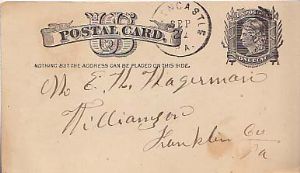 U S
POSTAL CARD.
NOTHING BUT THE ADDRESS CAN BE PLACED ON THIS SIDE.
NCASTLE
SEP
PA.
M. E. H. Hagerman
Williamson
Franklin Co
Pa